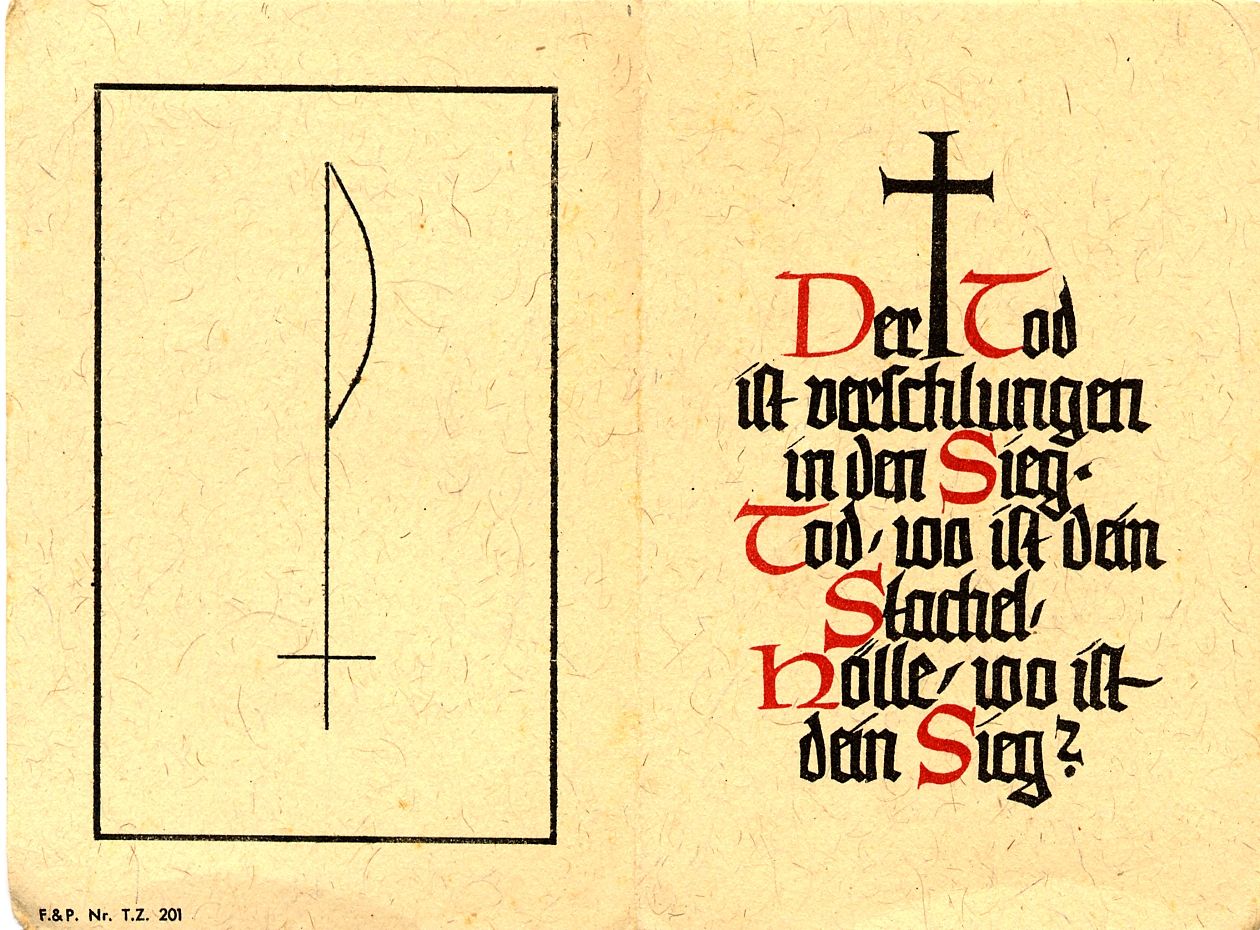 F.&P. Nr. T.Z. 201
Der Tod
ist verschlungen
in den Sieg.
Tod, wo ist dein
Stachel,
Hölle, wo ist
dein Sieg?